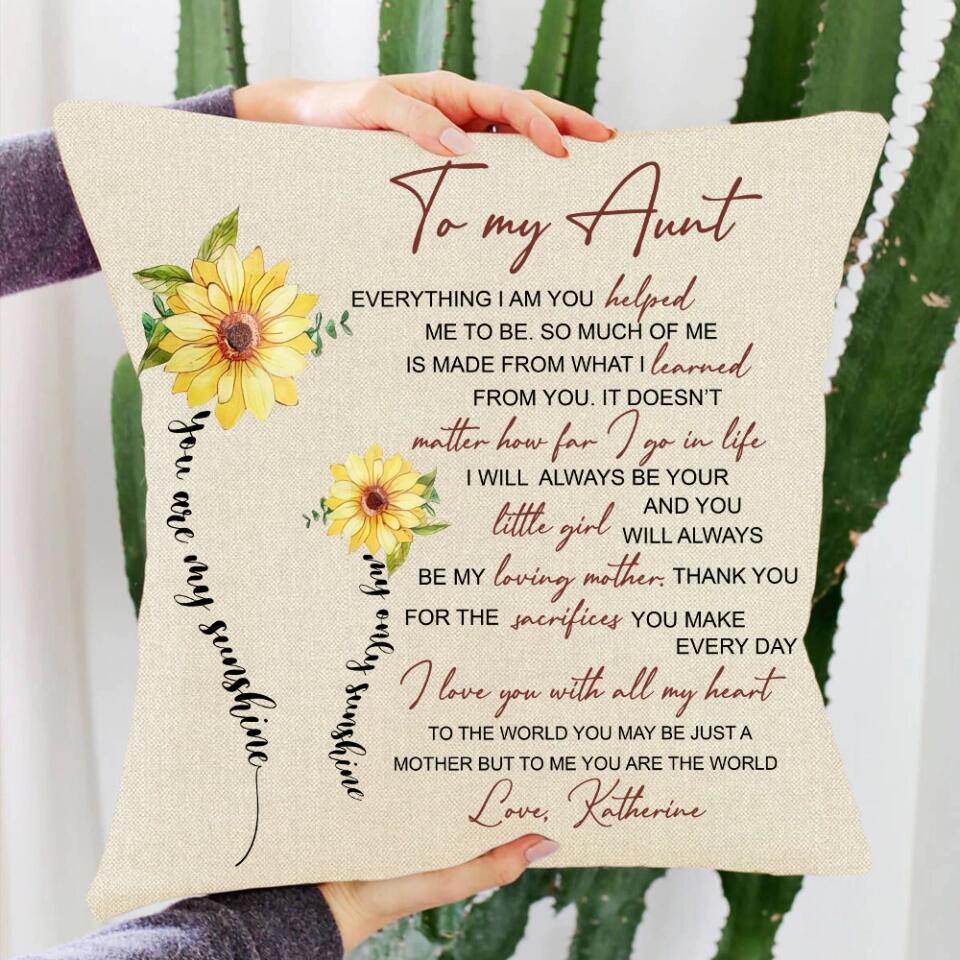 To my Aunt
EVERYTHING I AM YOU helped
ME TO BE. SO MUCH OF ME
IS MADE FROM WHAT I learned
FROM YOU. IT DOESN'T
matter how far I go in life
I WILL ALWAYS BE YOUR
little girl AND YOU
WILL ALWAYS
BE MY loving mother. THANK YOU
FOR THE sacrifices YOU MAKE
EVERY DAY
I love you with all my heart
TO THE WORLD YOU MAY BE JUST A
MOTHER BUT TO ME YOU ARE THE WORLD
Love, Katherine
You are my sunshine
my only sunshine